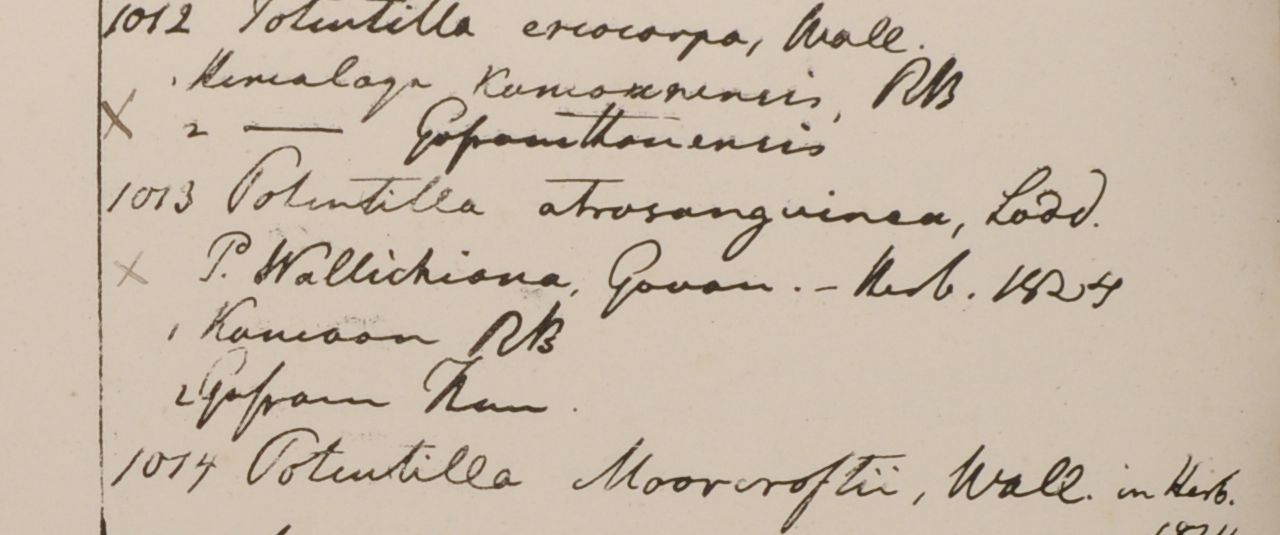 1012 Potentilla eriocarpa, Wall.
1 Himalaya Kamaonensis, RB
2 — Gosainthanensis
1013 Potentilla atrosanguinea, Lodd.
P. Wallichiana, Govan. - Herb. 1824
1 Kamaon RB
2 Gosain Than.
1014 Potentilla Moorcroftii, Wall. in Herb.